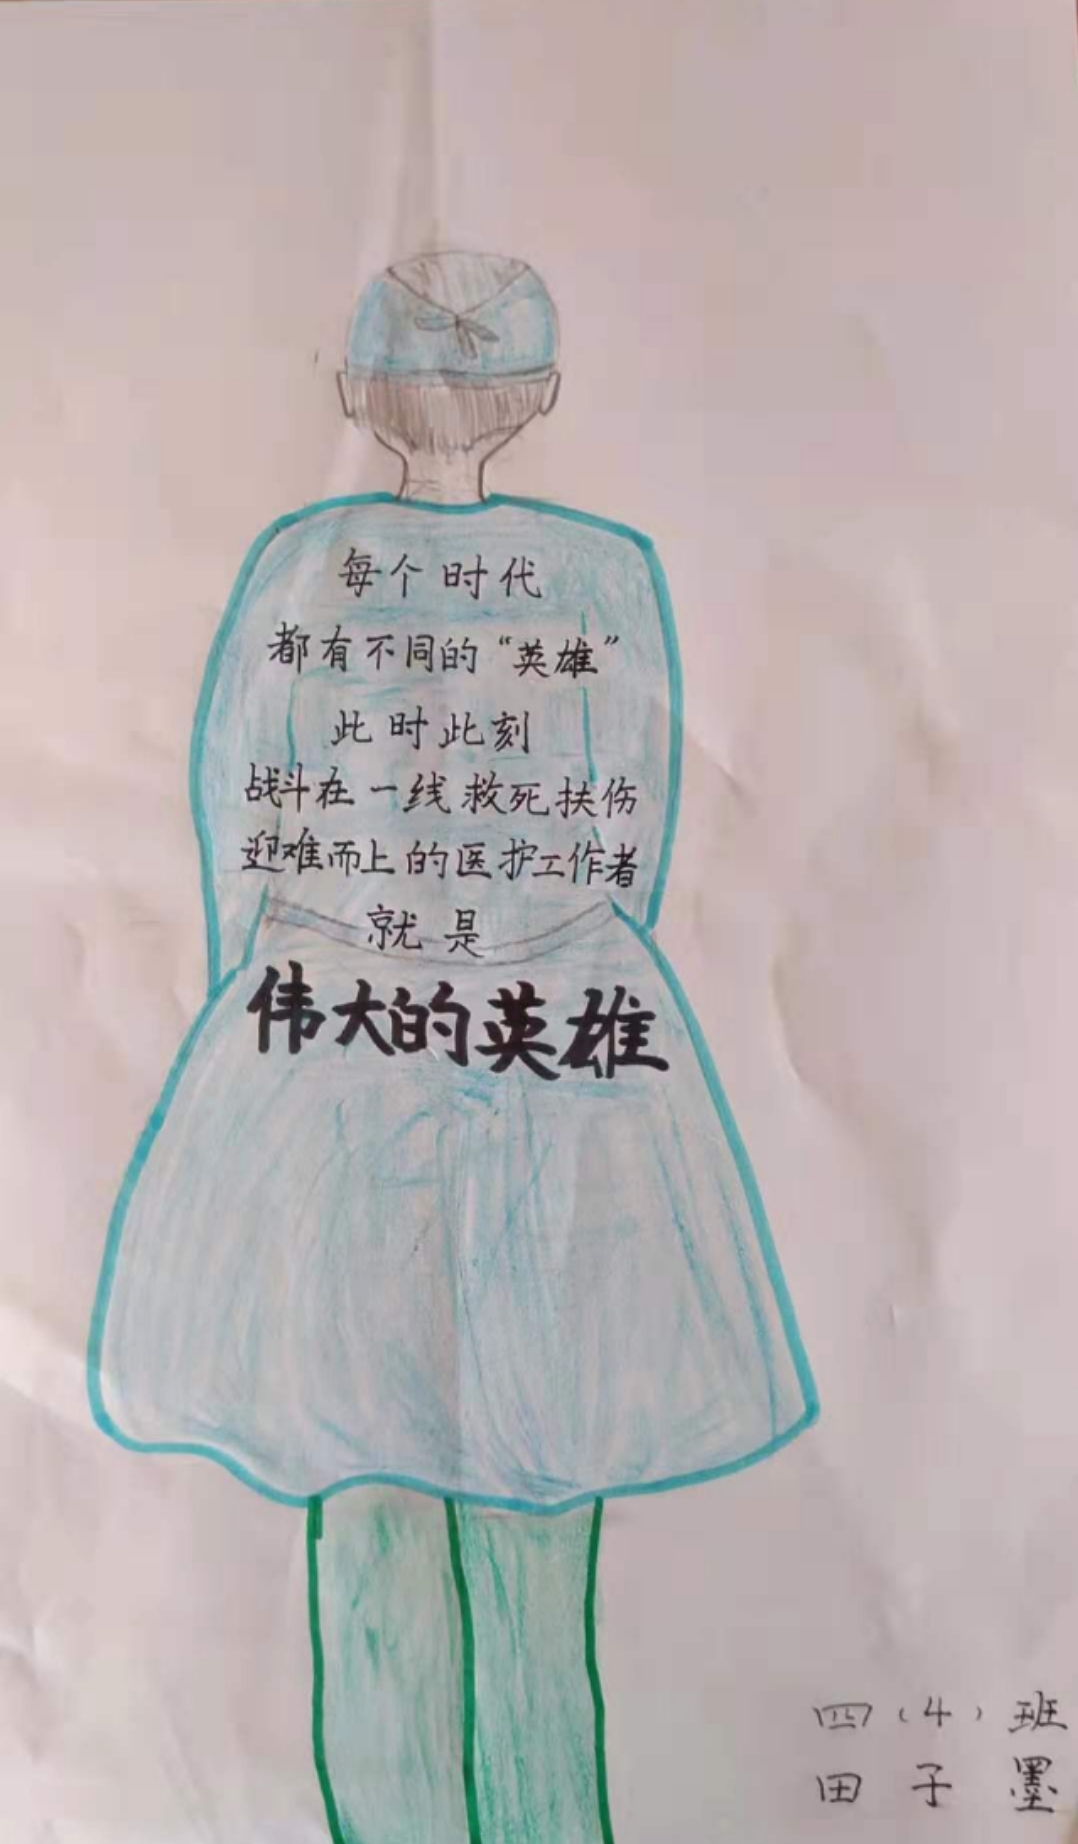 每个时代
都有不同的“英雄”
此时此刻
战斗在一线救死扶伤
迎难而上的医护工作者
就是
伟大的英雄
四（4）班
田子墨